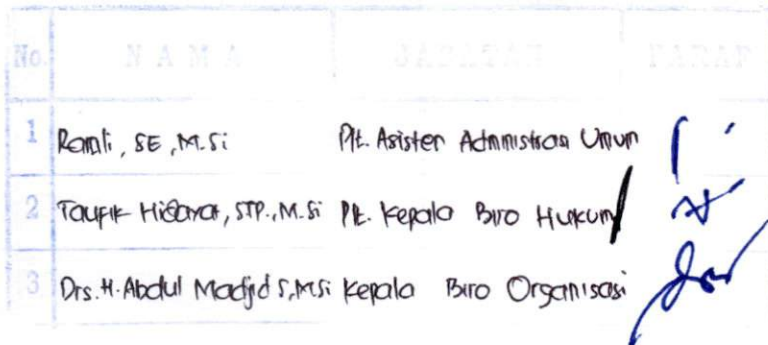 No. N A M A JABATAN PARAF
1 Ramli, SE, M.Si Plt. Asisten Administrasi Umum
2 Taufik Hidayat, STP., M.Si Plt. Kepala Biro Hukum
3 Drs. H. Abdul Madjid S, M.Si Kepala Biro Organisasi